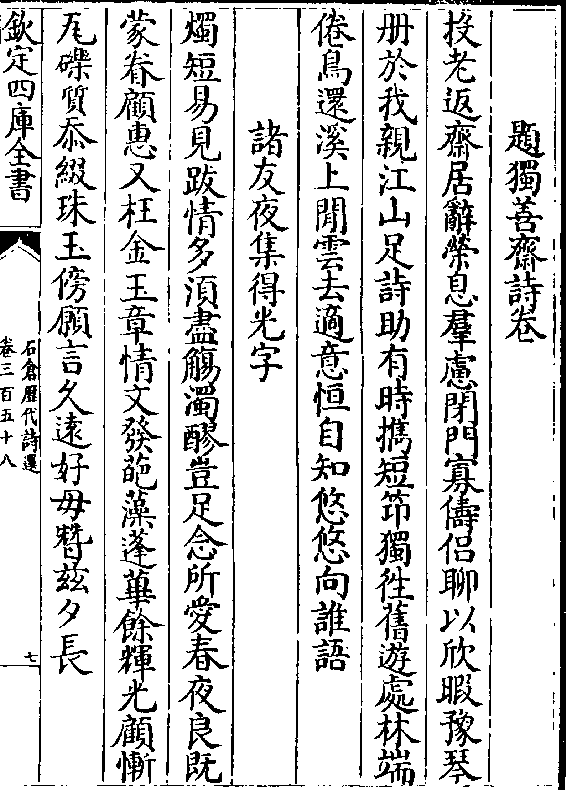 題獨善齋詩卷
投老返齋居辭榮息羣慮閉門寡儔侣聊以欣暇豫琴
册於我親江山足詩助有時携短笻獨徃舊遊處林端
倦鳥還溪上閒雲去適意恒自知悠悠向誰語
諸友夜集得光字
燭短易見跋情多須盡觴濁醪豈足念所愛春夜良既
蒙眷顧惠又枉金玉章情文發葩藻蓬蓽餘輝光顧慚
瓦礫質忝綴珠玉傍願言久遠好毋暫茲夕長
欽定四庫全書
石倉歷代詩選
卷三百五十八
七